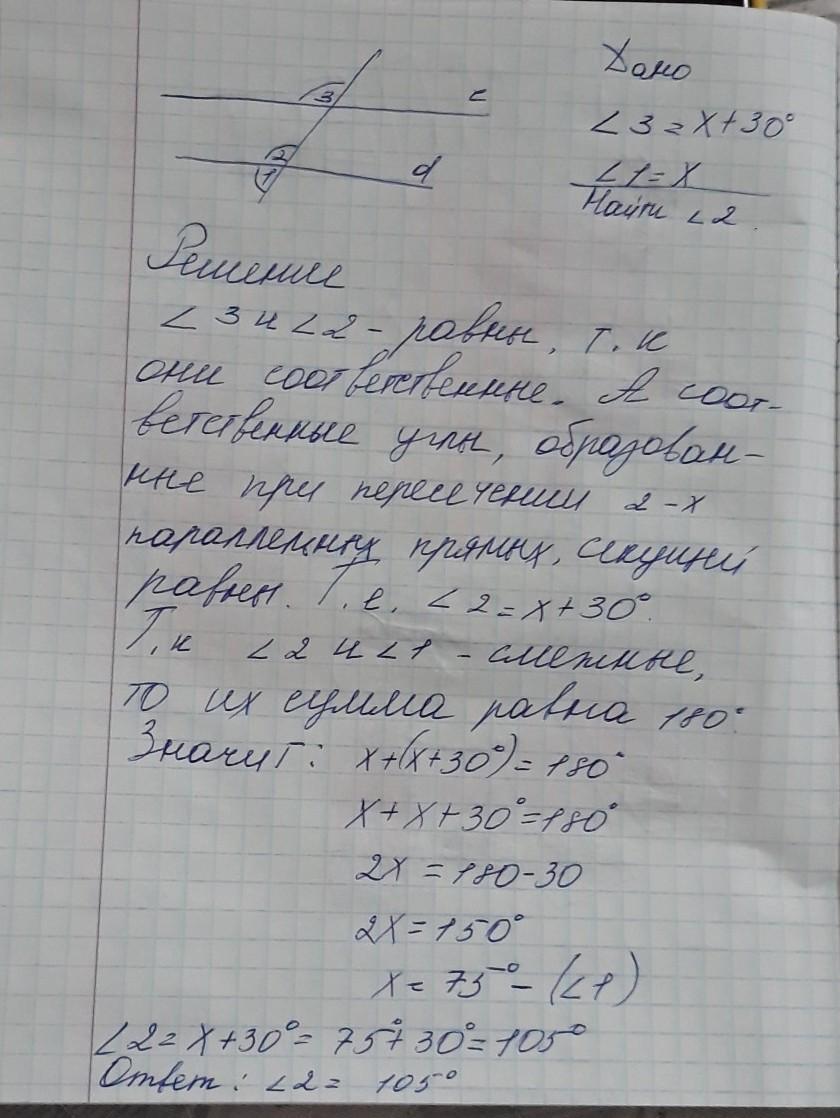 3
c
2
1
d
Дано
∠3=x+30°
∠1=x
Найти ∠2.
Решение
∠3 и ∠2 - равны, т.к
они соответственные. А соот-
ветственные углы, образован-
ные при пересечении 2-х
параллельных прямых, секущей
равны. Т.е. ∠2=x+30°.
Т.к ∠2 и ∠1 - смежные,
то их сумма равна 180°.
Значит: x+(x+30°)=180°
x+x+30°=180°
2x=180-30
2x=150°
x=75° - (∠1)
∠2=x+30°=75°+30°=105°
Ответ: ∠2= 105°